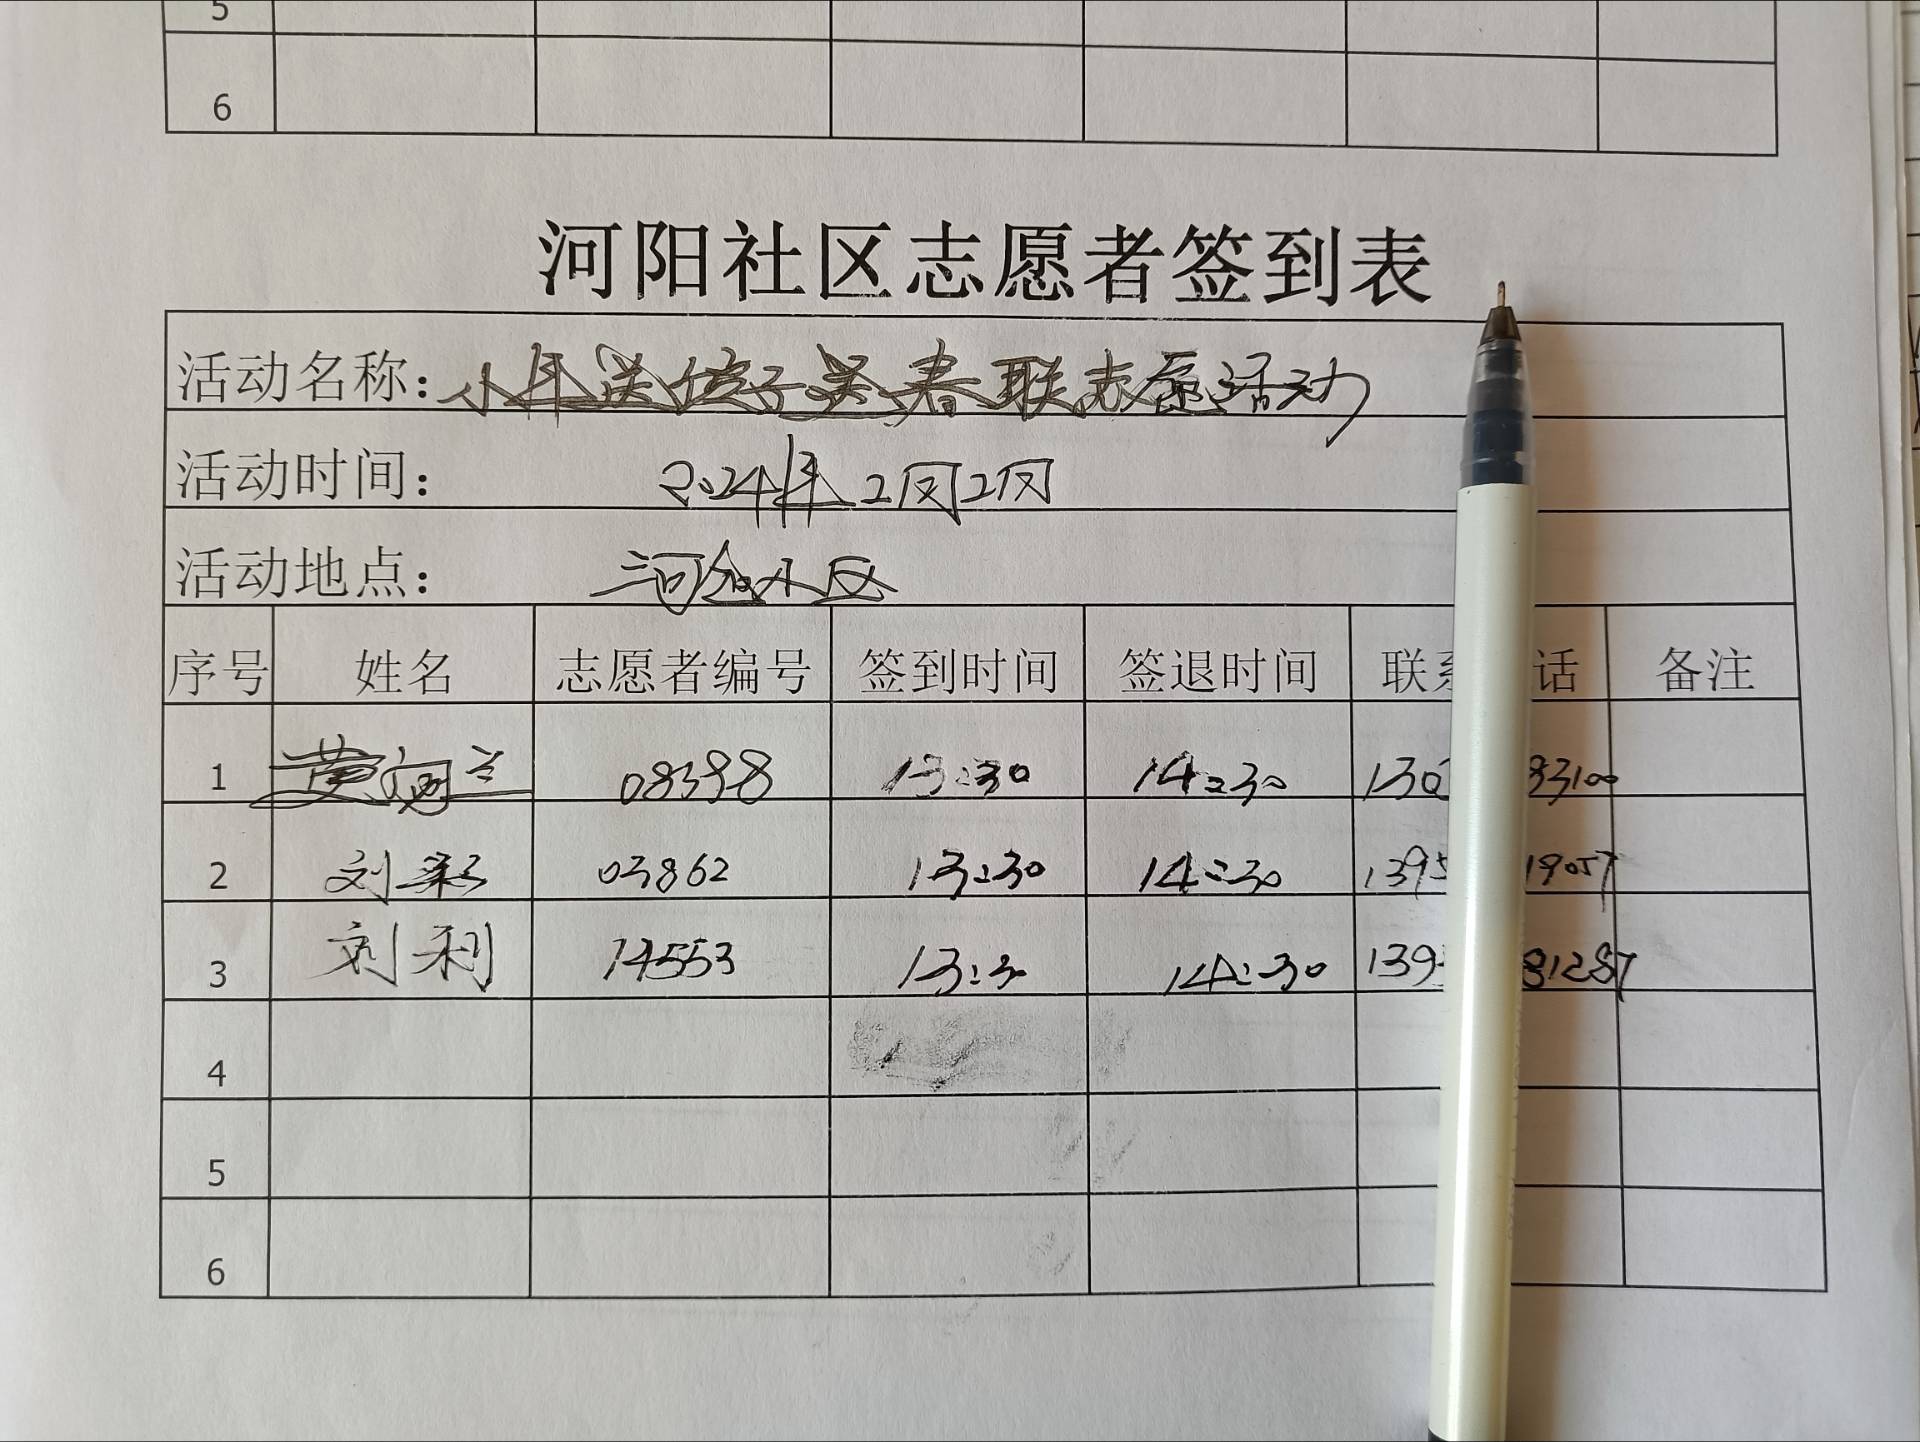 5
6
河阳社区志愿者签到表
活动名称：小年送饺子送春联志愿活动
活动时间： 2024年2月2日
活动地点： 小区
序号 姓名 志愿者编号 签到时间 签退时间 联 话 备注
1 黄 兰 08398 13:30 14:30 130 83100
2 刘 03862 13:30 14:30 139 19057
3 刘利 14553 13:30 14:30 139 81287
4
5
6